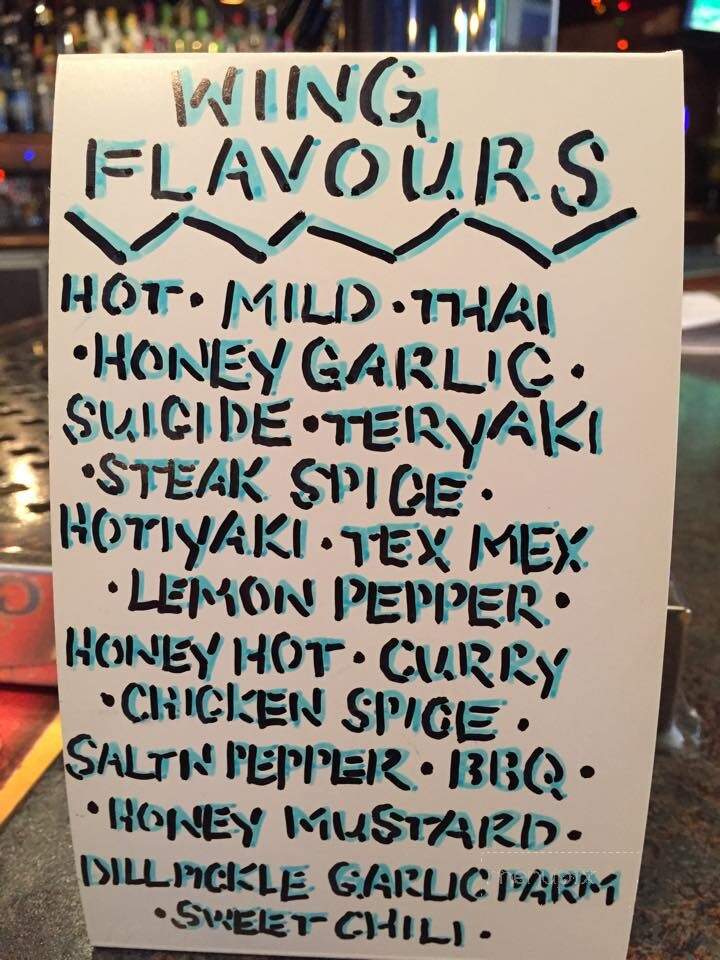 WING
FLAVOURS
HOT • MILD • THAI
• HONEY GARLIC •
SUICIDE • TERYAKI
• STEAK SPICE •
HOTIYAKI • TEX MEX
• LEMON PEPPER •
HONEY HOT • CURRY
• CHICKEN SPICE •
SALTN PEPPER • BBQ •
• HONEY MUSTARD •
DILL PICKLE GARLIC PARM
• SWEET CHILI •